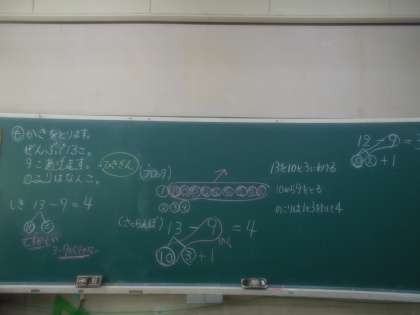 かきをとります。
ぜんぶで13こ。
9こあげます。
のこりはなんこ。
ひきざん
しき 13-9=4
10 3
(ブロック)
13を10と3にわける
10から9をとる
のこりは1と3をたして4
(さくらんぼ)
13-9=4
10 3+1
12-9=3
3+1